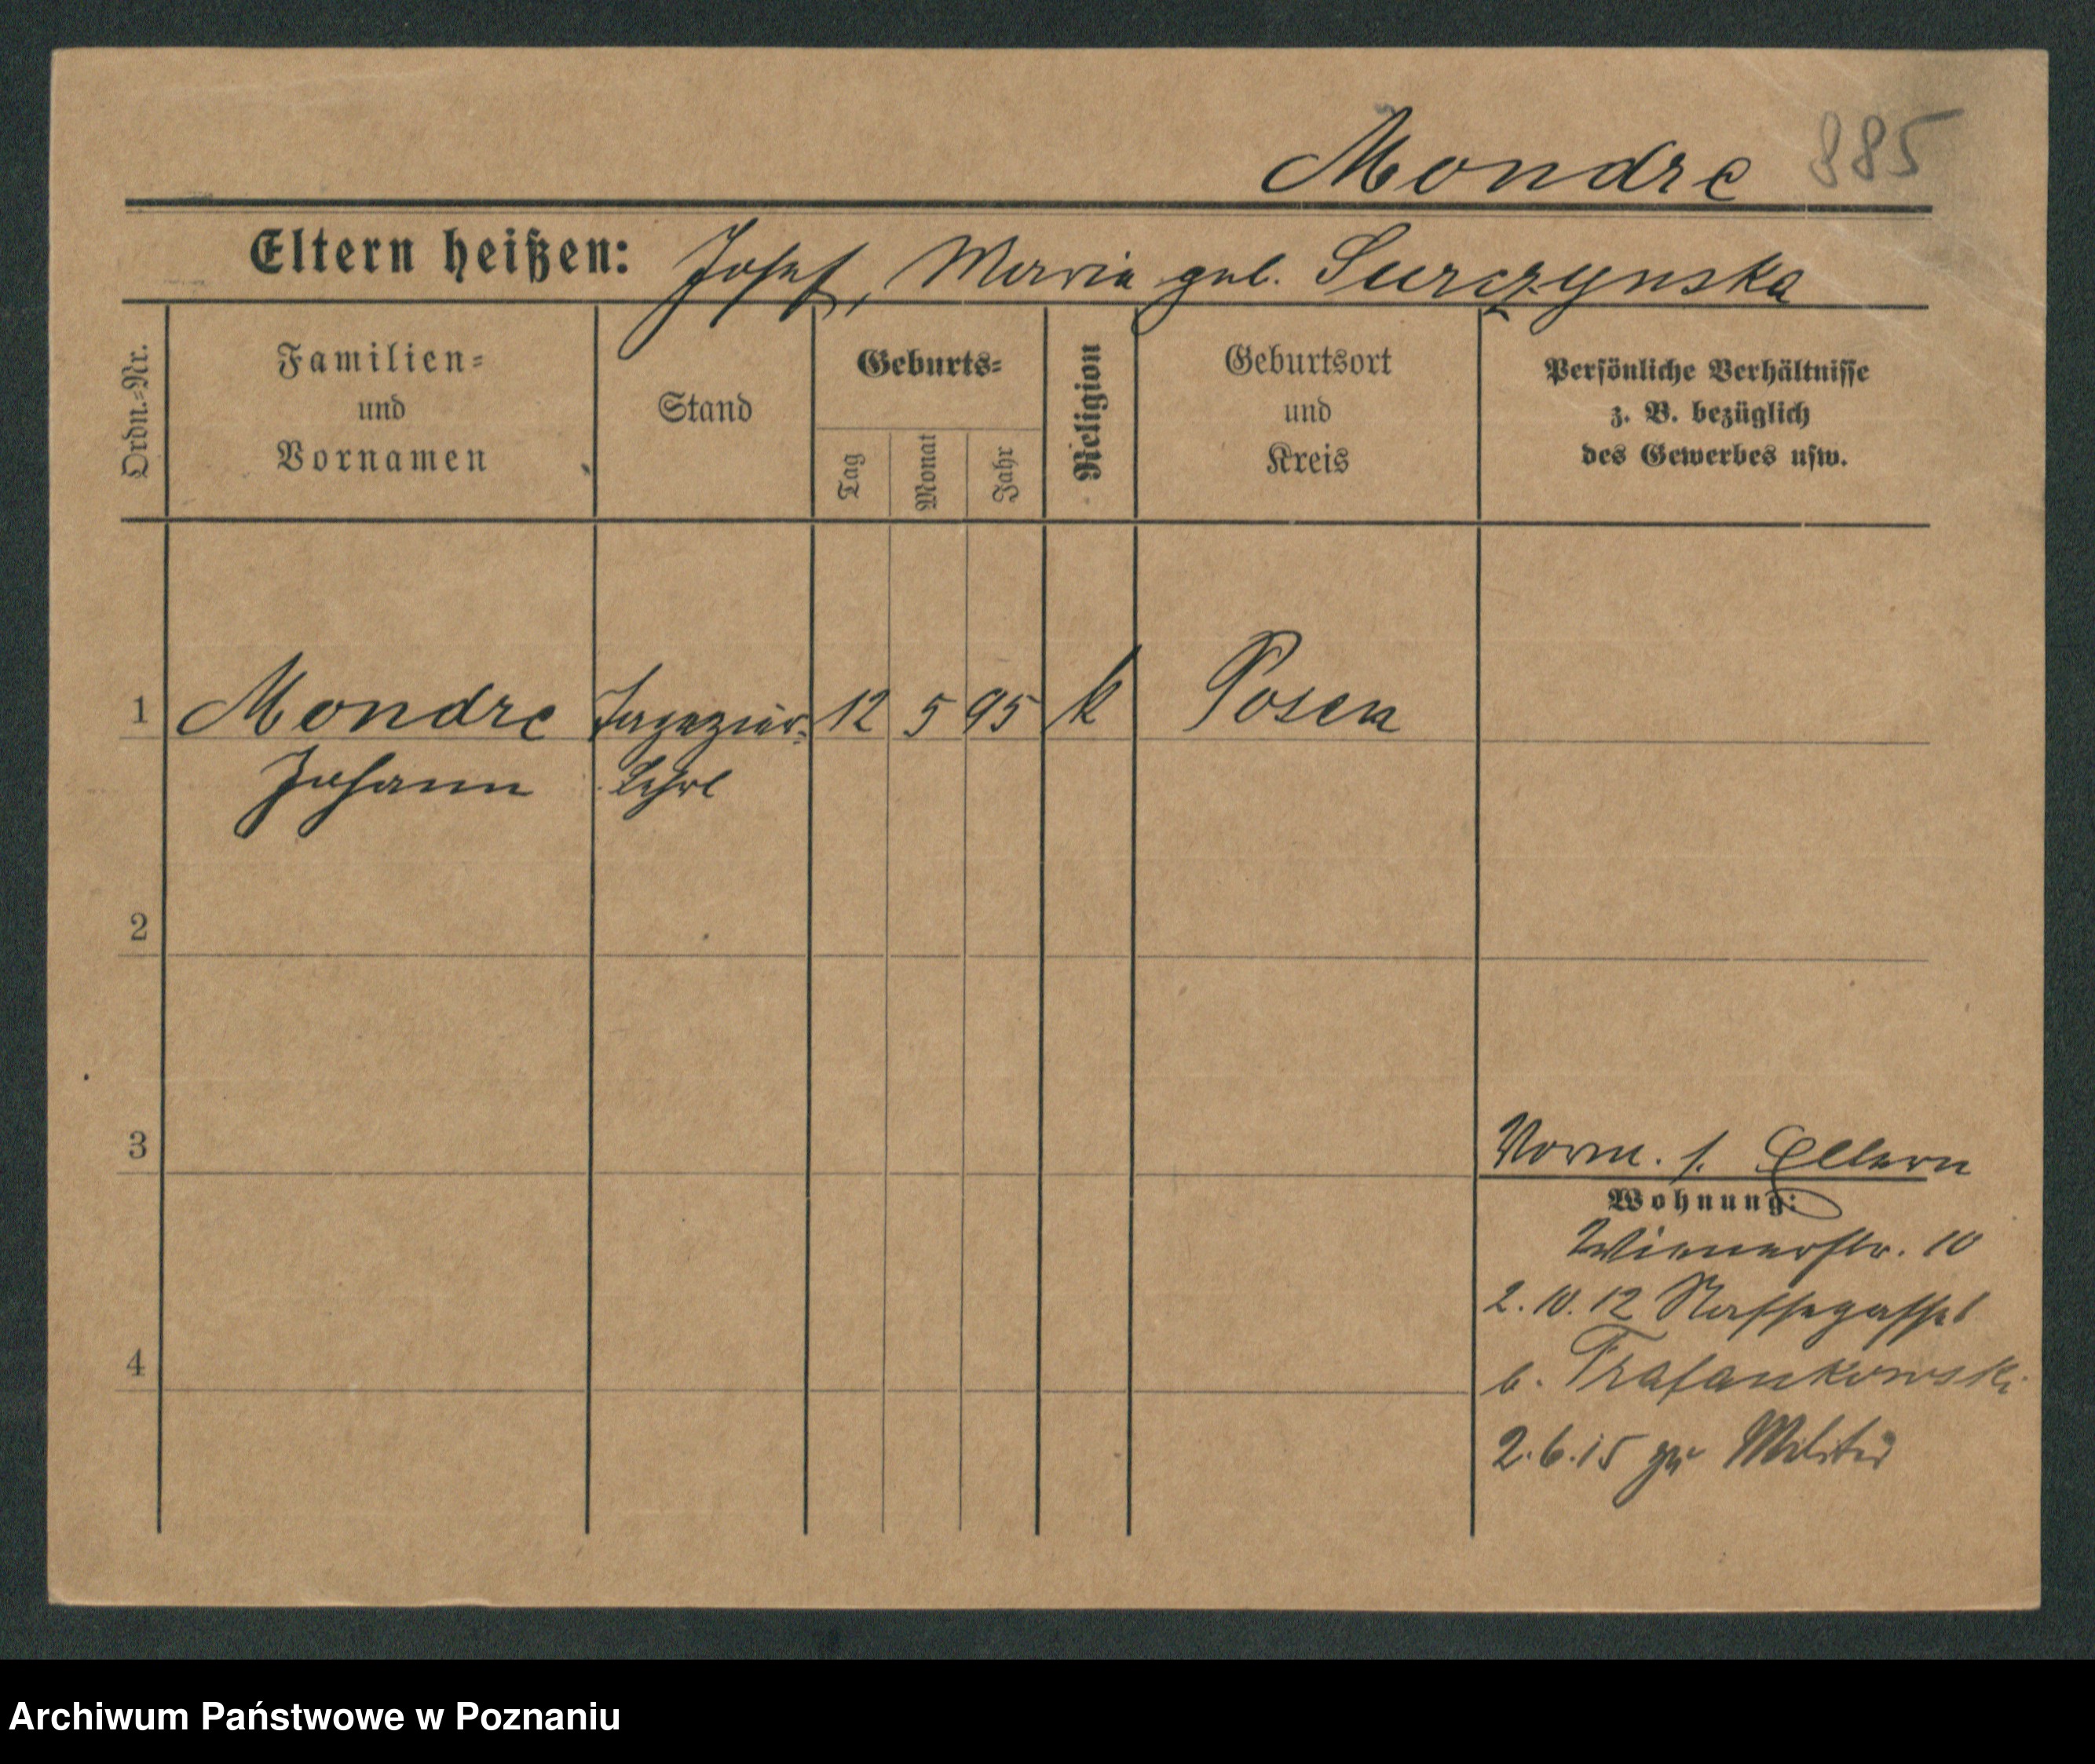 Mondre 885
Eltern heißen: Josef, Maria geb. Surczynska
Ordn.-Nr.
Familien-
und
Vornamen
Stand
Geburts-
Tag
Monat
Jahr
Religion
Geburtsort
und
Kreis
Persönliche Verhältnisse
z. B. bezüglich
des Gewerbes usw.
1 Mondre Tapezier- 12 5 95 k Posen
Johann Lehrl
2
3
Vorm. s. Eltern
Wohnung:
Wienerstr. 10
2.10.12 Nassegasse 1
4
b.
2.6.15 zu Militär
Archiwum Państwowe w Poznaniu